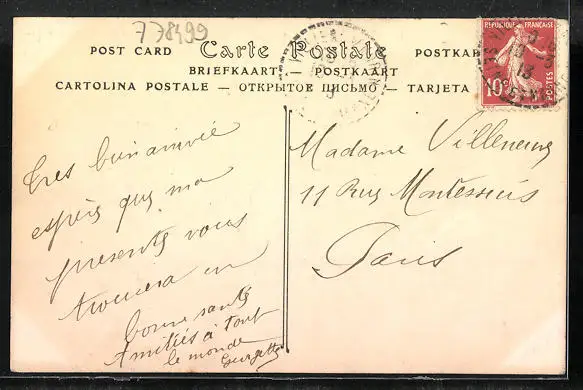 778499
POST CARD Carte Postale POSTKARTE
BRIEFKAART — POSTKAART
CARTOLINA POSTALE — ОТКРЫТОЕ ПИСЬМО — TARJETA
REPUBLIQUE FRANÇAISE
10c POSTES
13
Très bien arrivée
espère que ma
présente vous
trouvera en
bonne santé
Amitiés à tout
le monde
Madame Villeneuve
11 Rue
Paris